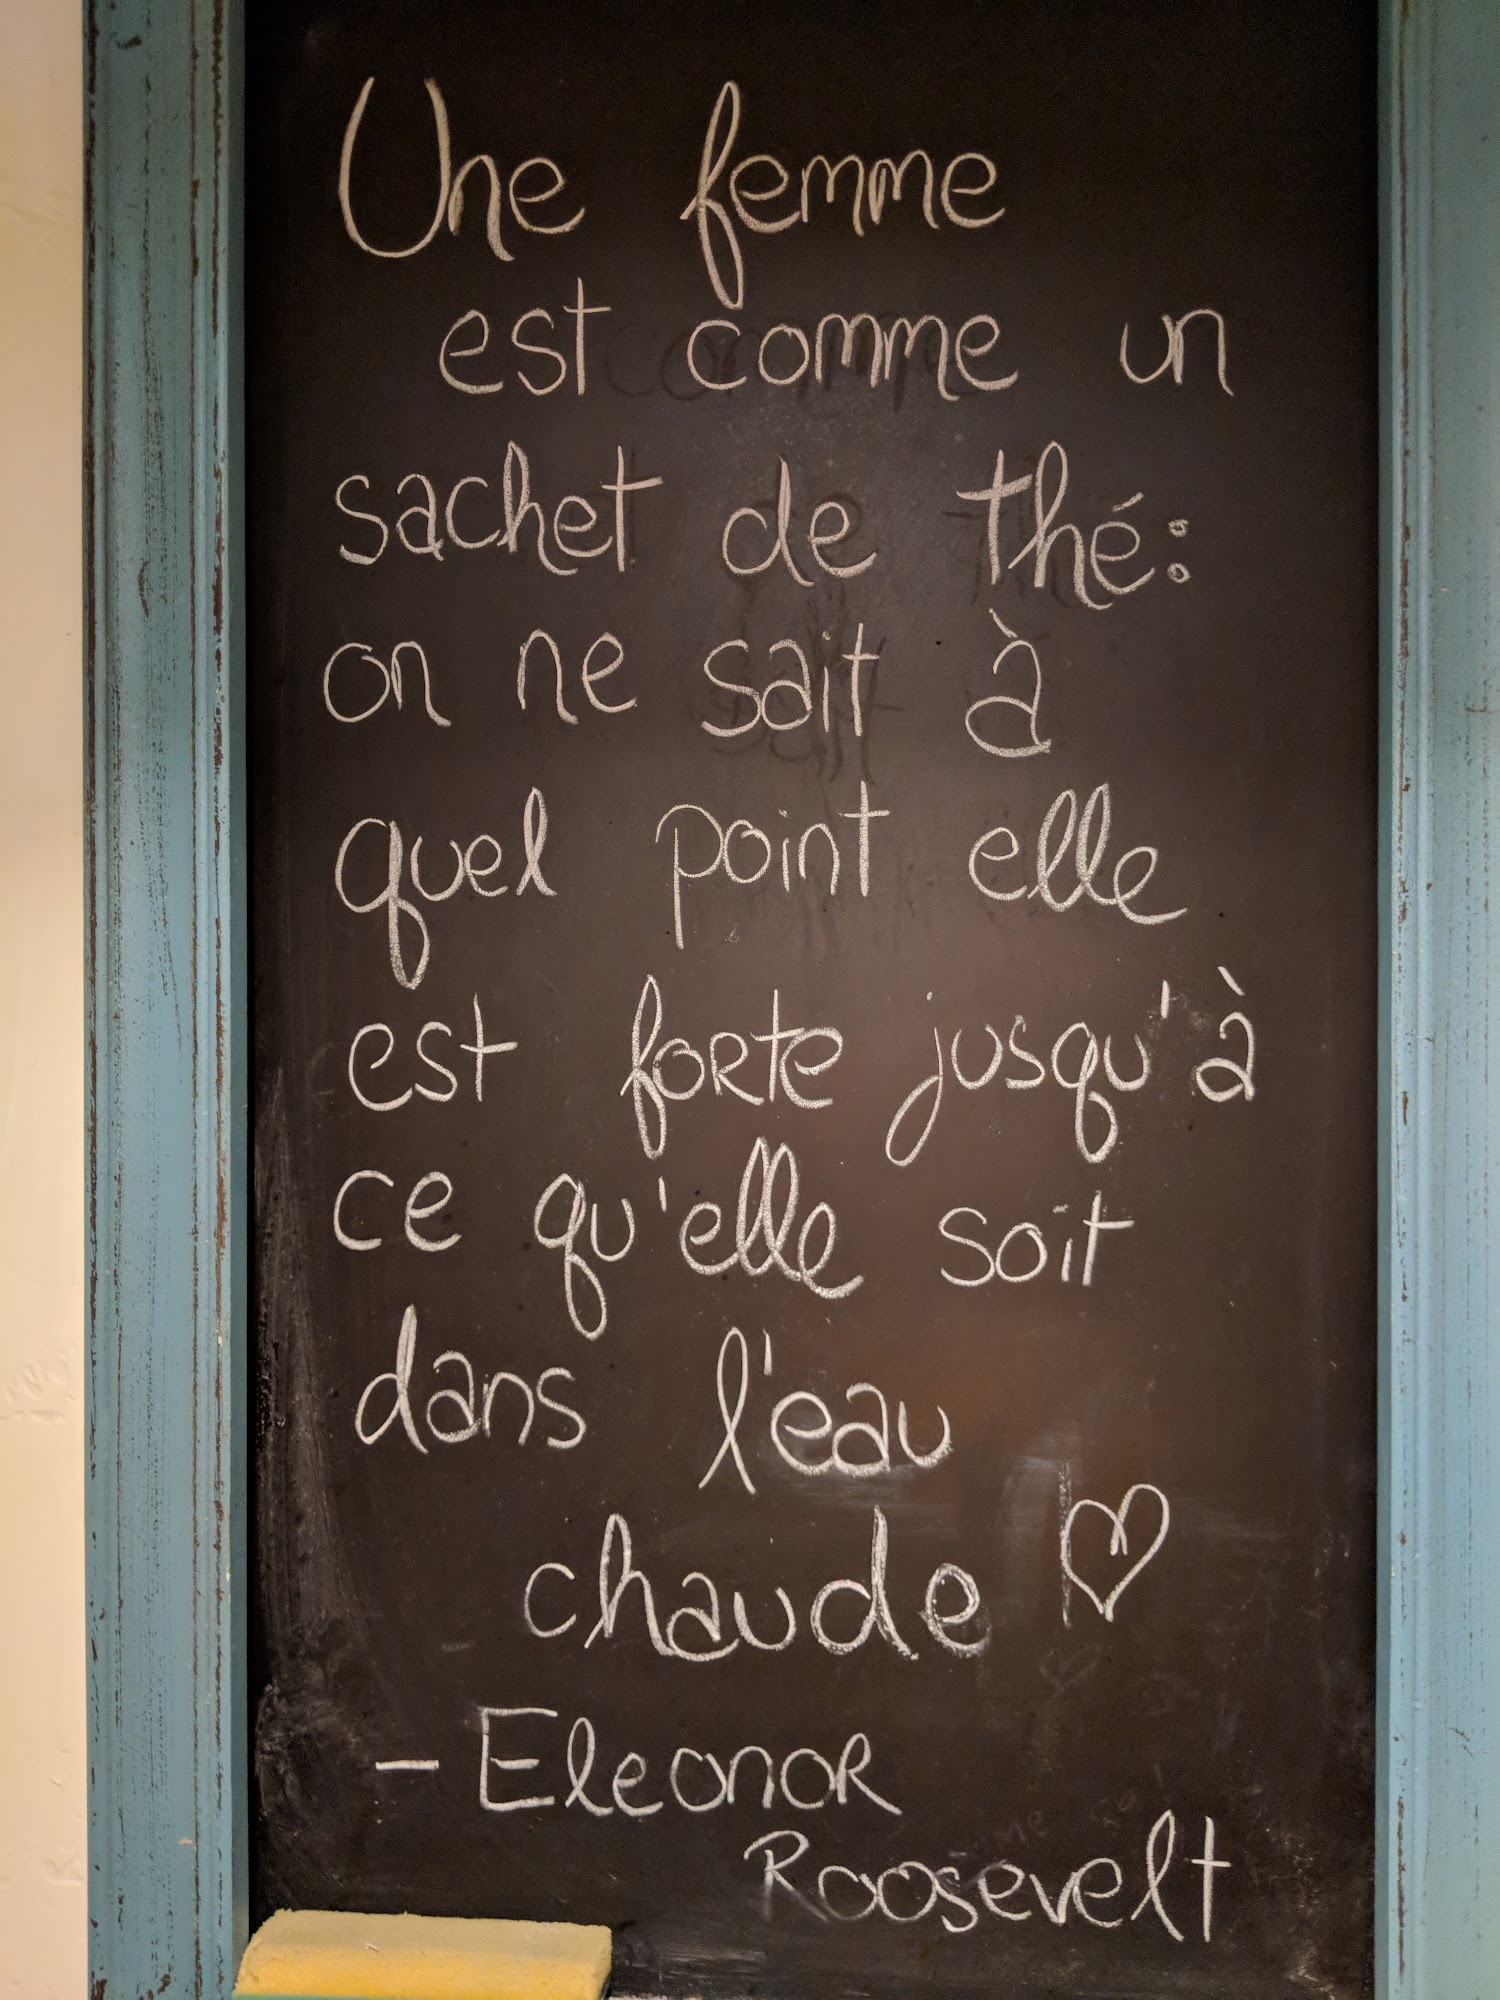 Une femme
est comme un
sachet de thé:
on ne sait à
quel point elle
est forte jusqu'à
ce qu'elle soit
dans l'eau
chaude ♡
- Eleonor
Roosevelt